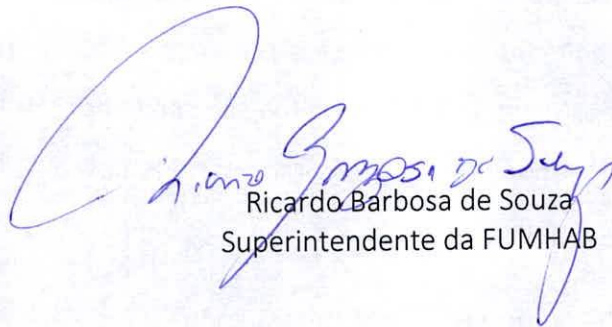 Ricardo Barbosa de Souza
Ricardo Barbosa de Souza
Superintendente da FUMHAB